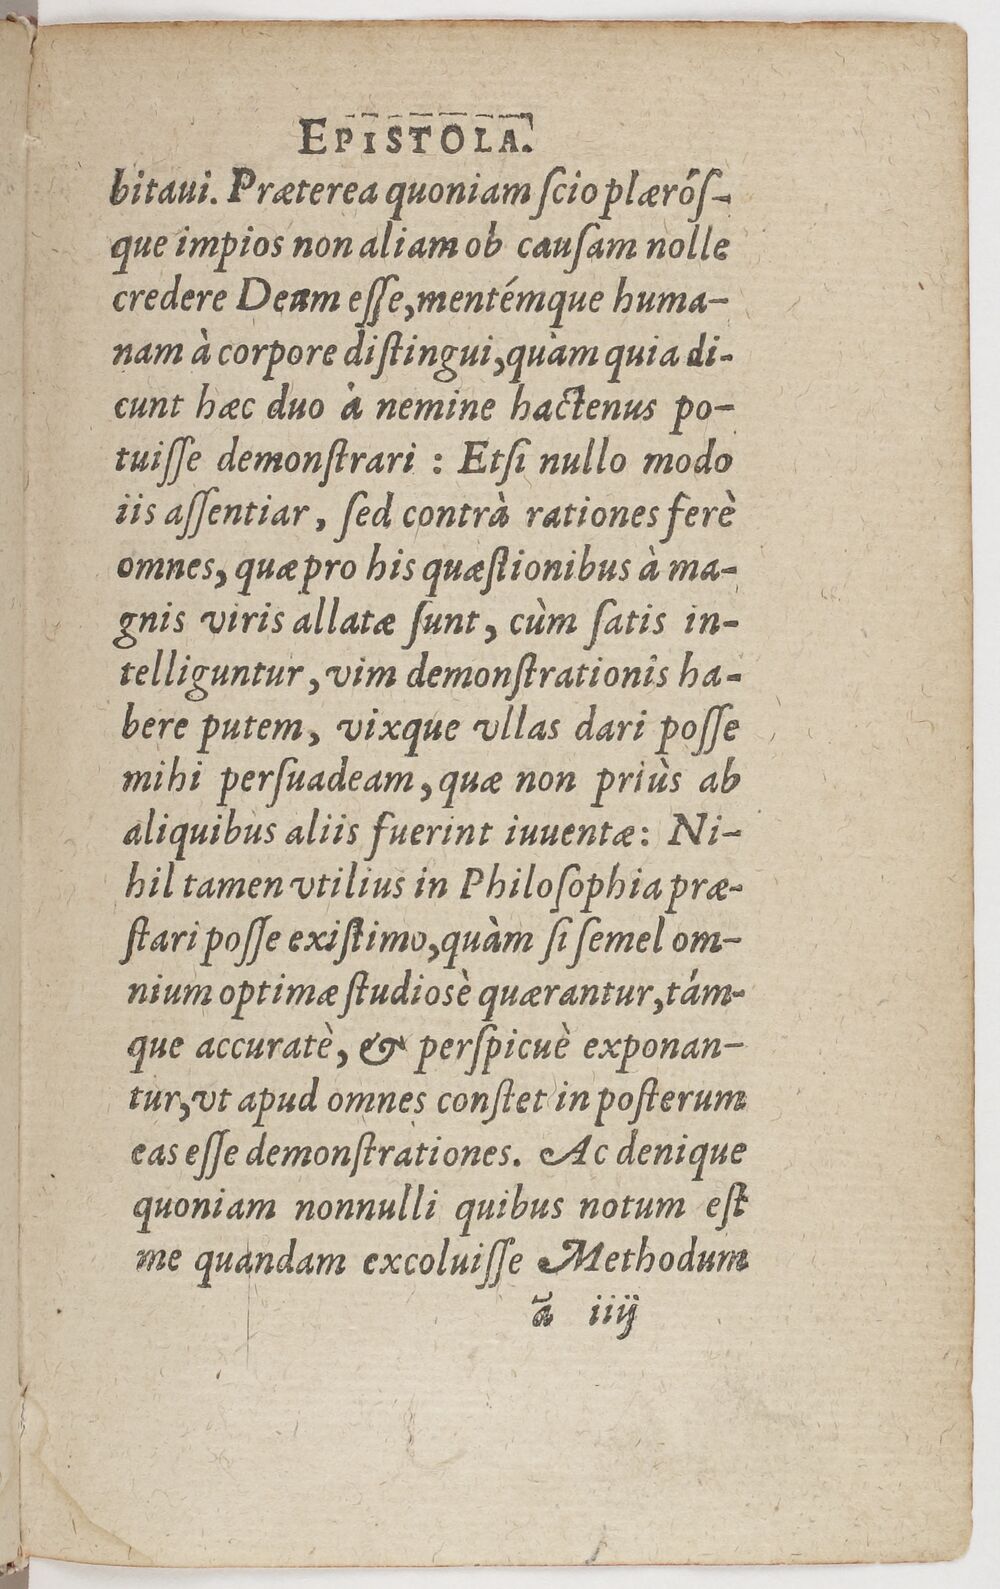 EPISTOLA.
bitaui. Præterea quoniam ſcio plæróſ-
que impios non aliam ob cauſam nolle
credere Deum eſſe, mentémque huma-
nam à corpore diſtingui, quàm quia di-
cunt hæc duo à nemine hactenus po-
tuiſſe demonſtrari : Etſi nullo modo
iis aſſentiar, ſed contrà rationes ferè
omnes, quæ pro his quæſtionibus à ma-
gnis viris allatæ ſunt, cùm ſatis in-
telliguntur, vim demonſtrationis ha-
bere putem, vixque vllas dari poſſe
mihi perſuadeam, quæ non priùs ab
aliquibus aliis fuerint iuuentæ: Ni-
hil tamen vtilius in Philoſophia præ-
ſtari poſſe exiſtimo, quàm ſi ſemel om-
nium optimæ ſtudiosè quærantur, tám-
que accuratè, & perſpicuè exponan-
tur, vt apud omnes conſtet in poſterum
eas eſſe demonſtrationes. Ac denique
quoniam nonnulli quibus notum eſt
me quandam excoluiſſe Methodum
ã iiij